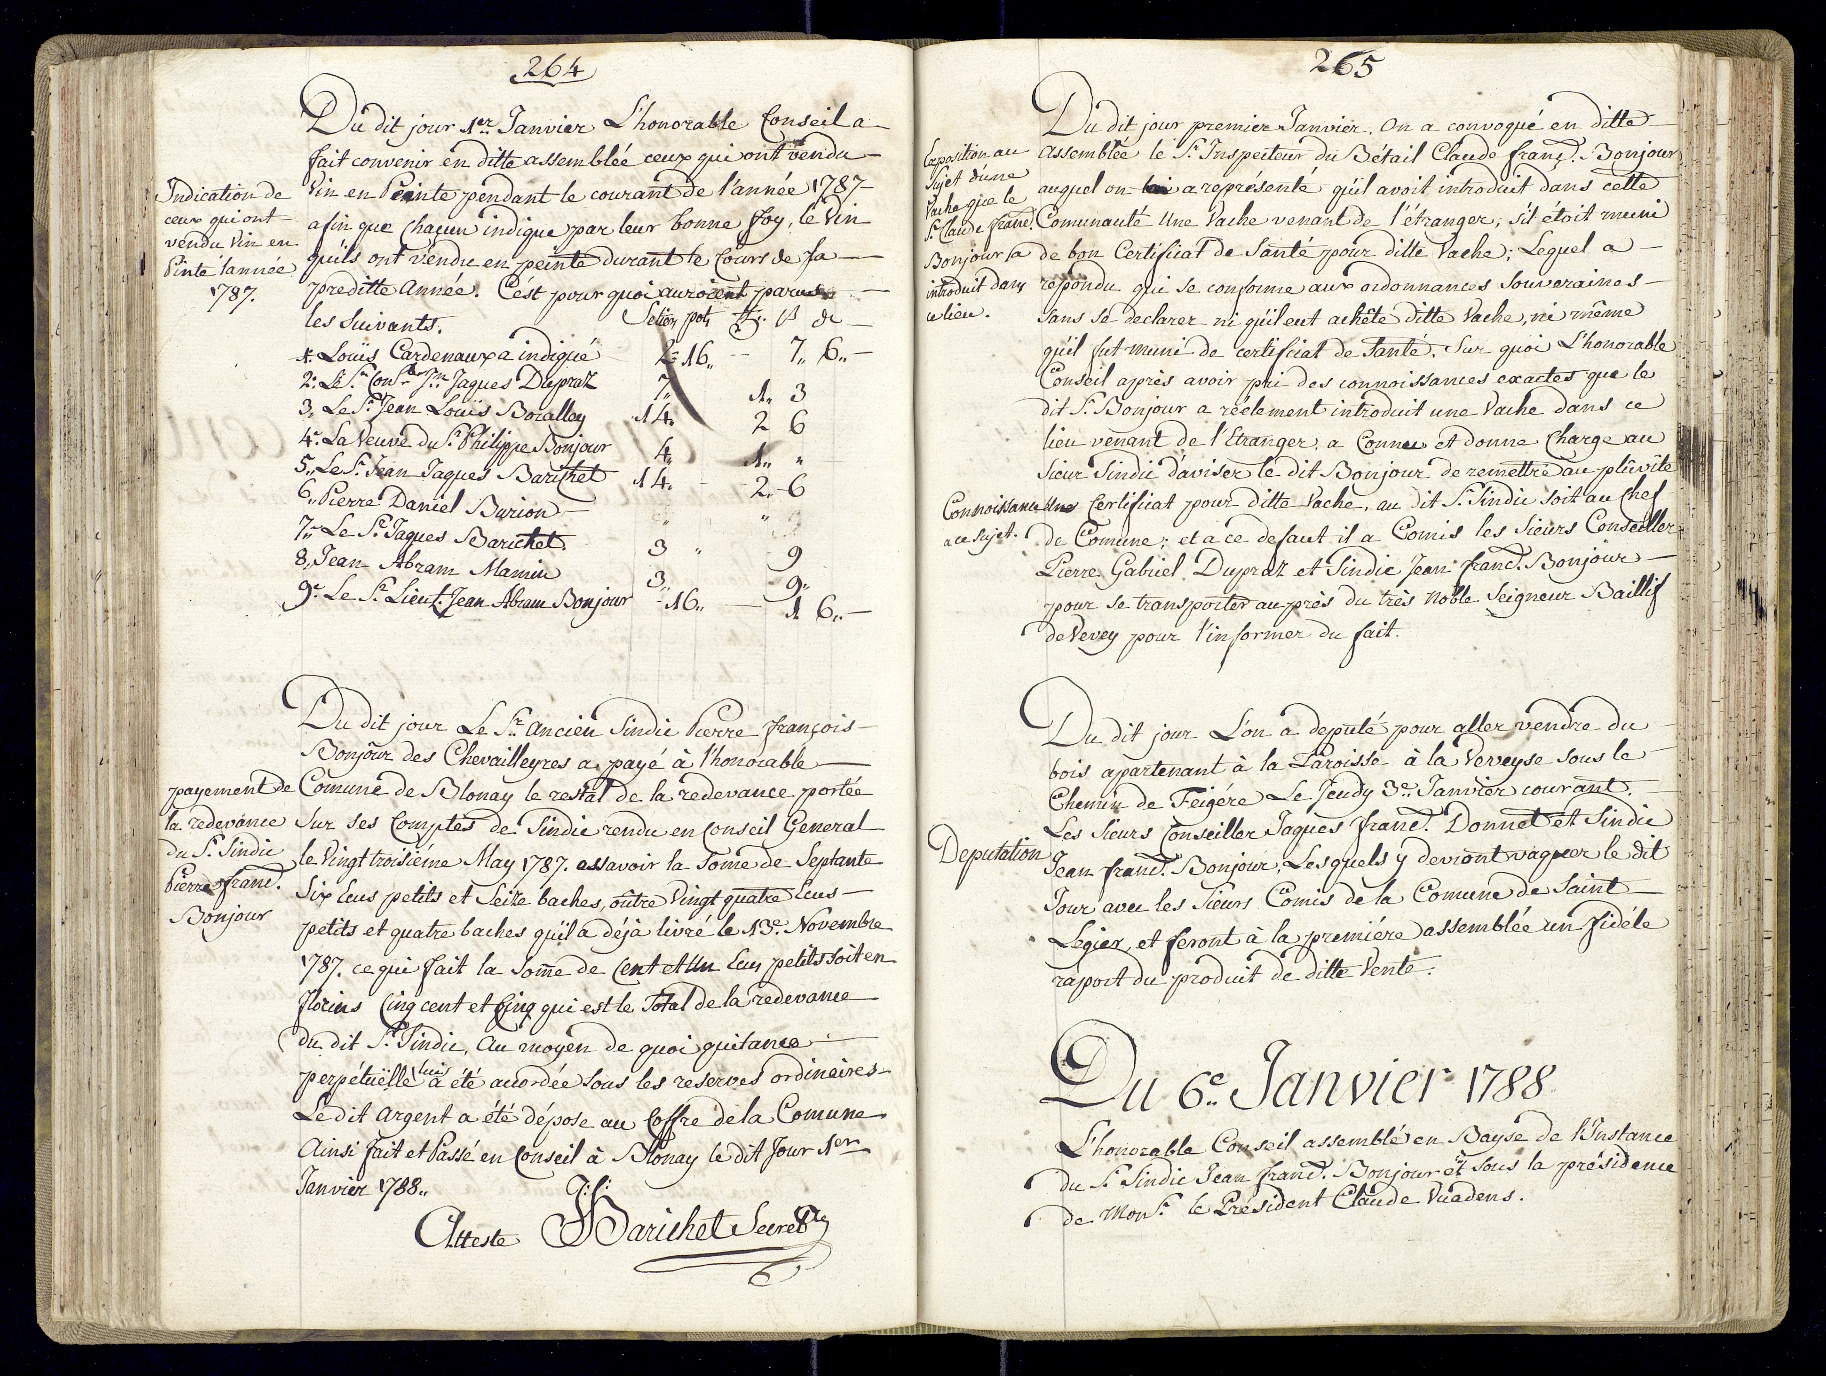 264
Du dit jour 1er Janvier L'honorable Conseil a
fait convenir en ditte assemblée ceux qui ont vendu
Indication de
ceux qui ont
vendu Vin en
Pinte l'année
1787.
Vin en Peinte pendant le courant de l'année 1787
afin que chacun indique par leur bonne foy, le Vin
qu'ils ont vendu en peinte durant le Cours de la
preditte Année. C'est pour quoi auroient parus
les suivants. Setier pot ff. ß d
1. Loüis Cardenaux a indiqué 2 16 7 6
2. Le Sr. Consr. Jn. Jaques Dupraz 7 1 3
3. Le Sr. Jean Loüis Boralley 14 2 6
4. La Veuve du Sr. Philippe Bonjour 4 1 "
5. Le Sr. Jean Jaques Barichet 14 2 6
6. Pierre Daniel Burion " "
7. Le Sr. Jaques Barichet 3 " 9
8. Jean Abram Mamin 3 9
9. Le Sr. Lieut. Jean Abram Bonjour 16 1 6
Du dit jour Le Sr. ancien Sindic Pierre françois
Bonjour des Chevailleyres a payé à l'honorable
payement de
la redevance
du Sr. Sindic
Pierre franc.
Bonjour
Comune de Blonay le restat de la redevance portée
Sur ses Comptes de Sindic rendu en Conseil General
le Vingt troisiéme May 1787. assavoir la Some de Septante
Six Ecus petits et Seize baches, outre Vingt quatre Ecus
petits et quatre baches qu'il a déjà livré le 13e. Novembre
1787. ce qui fait la some de Cent et Un Ecus petits soit en
florins Cinq cent et Cinq qui est le Total de la redevance
du dit Sr. Sindic, Au moyen de quoi quitance
perpétuëlle lui a été accordée sous les reserves ordinaires
Le dit Argent a été dépose au Coffre de la Comune
Ainsi fait et Passé en Conseil à Blonay le dit Jour 1er
Janvier 1788.
Atteste JJBarichet Secret.
265
Du dit jour premier Janvier. On a convoqué en ditte
Exposition au
Sujet d'une
Vache que le
Sr. Claude franc.
Bonjour a
introduit dans
ce lieu.
Assemblée le Sr. Inspecteur du Bétail Claude franç. Bonjour
auquel on a représenté qu'il avoit introduit dans cette
Comunauté Une Vache venant de l'étranger; s'il étoit muni
de bon Certificat de Santé pour ditte Vache; Lequel a
répondu qui se conforme aux ordonnances Souveraines
sans se declarer ni qu'il eut achêté ditte Vache, ni même
qu'il fut muni de certificat de Santé. Sur quoi L'honorable
Conseil après avoir pri des connoissances exactes que le
dit Sr. Bonjour a réelement introduit une Vache dans ce
lieu venant de l'Etranger, a Connu et donne Charge au
Sieur Sindic d'aviser le dit Bonjour de remettre au plûvîte
Connoissance
a ce Sujet.
Une Certificat pour ditte Vache, au dit Sr. Sindic soit au Chef
de Comune; et à ce defaut il a Comis les Sieurs Conseiller
Pierre Gabriel Dupraz et Sindic Jean franc. Bonjour
pour se transporter auprès du très Noble Seigneur Baillif
de Vevey pour l'informer du fait.
Du dit jour L'on a deputé pour aller vendre du
bois apartenant à la Paroisse à la Veveyse sous le
Chemin de Feigére Le Jeudy 3e. Janvier courant.
Deputation
Les Sieurs Conseiller Jaques franc. Donnet et Sindic
Jean franc. Bonjour, Lesquels y devront vaquer le dit
Jour avec les Sieurs Comis de la Comune de Saint
Legier, et feront à la premiére assemblée un fidéle
raport du produit de ditte Vente.
Du 6e. Janvier 1788
L'honorable Conseil assemblé en Bayse de l'Instance
du Sr. Sindic Jean franc. Bonjour et sous la présidence
de Monsr. le Président Claude Vuadens.